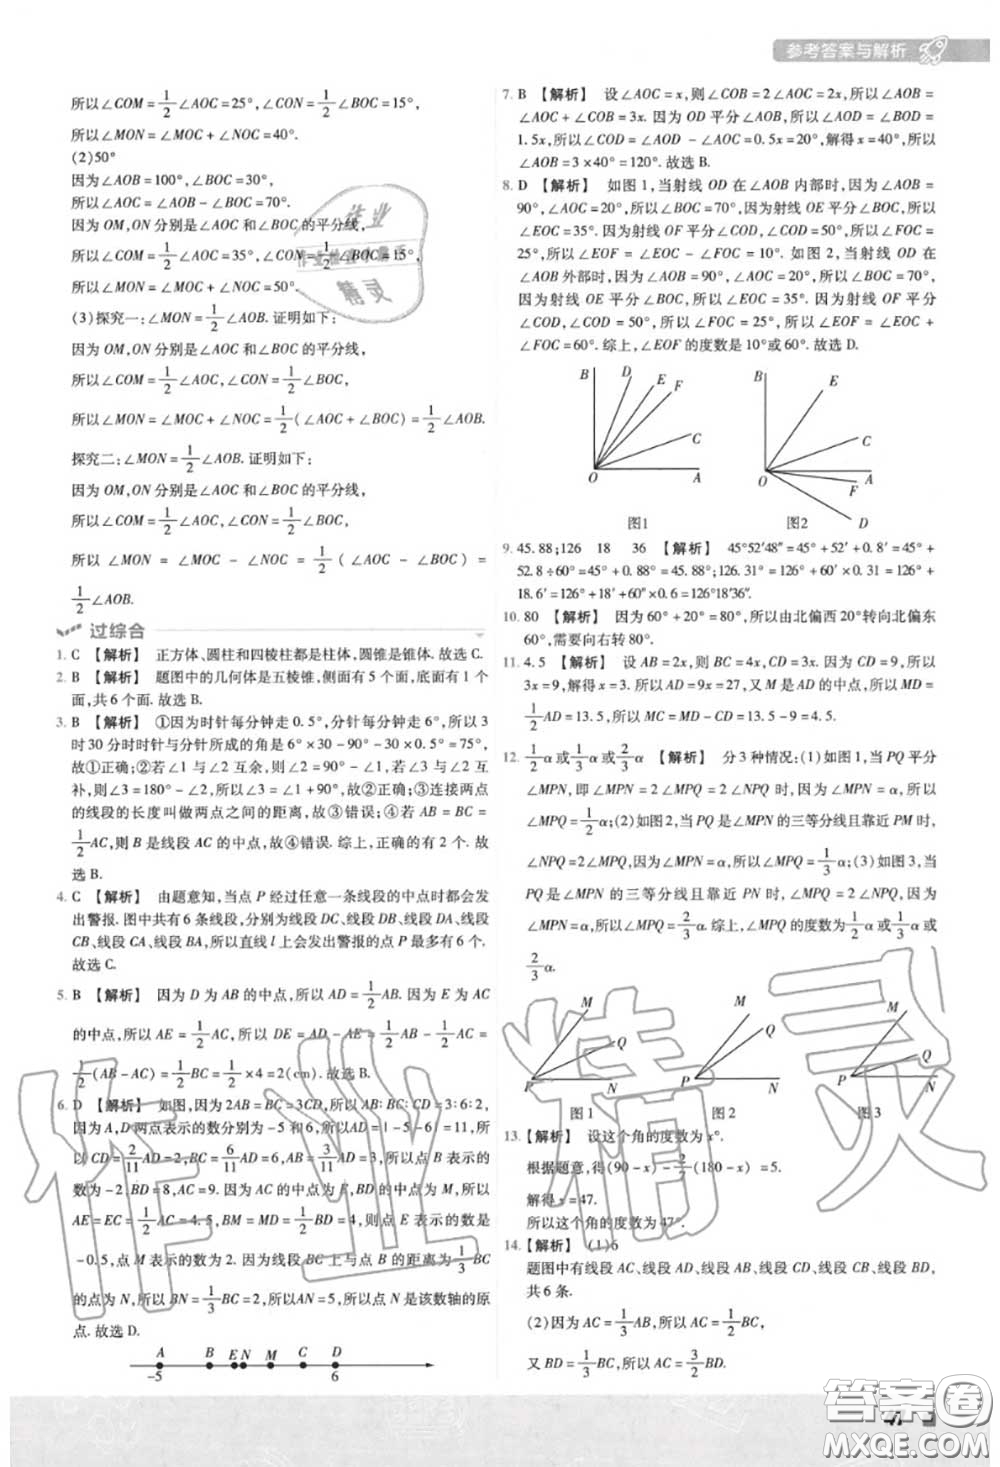 参考答案与解析
所以∠COM=1/2∠AOC=25°,∠CON=1/2∠BOC=15°,
所以∠MON=∠MOC+∠NOC=40°.
(2)50°
因为∠AOB=100°,∠BOC=30°,
所以∠AOC=∠AOB-∠BOC=70°.
因为OM,ON分别是∠AOC和∠BOC的平分线,
所以∠COM=1/2∠AOC=35°,∠CON=1/2∠BOC=15°,
所以∠MON=∠MOC+∠NOC=50°.
(3)探究一:∠MON=1/2∠AOB.证明如下:
因为OM,ON分别是∠AOC和∠BOC的平分线,
所以∠COM=1/2∠AOC,∠CON=1/2∠BOC,
所以∠MON=∠MOC+∠NOC=1/2(∠AOC+∠BOC)=1/2∠AOB.
探究二:∠MON=1/2∠AOB.证明如下:
因为OM,ON分别是∠AOC和∠BOC的平分线,
所以∠COM=1/2∠AOC,∠CON=1/2∠BOC,
所以∠MON=∠MOC-∠NOC=1/2(∠AOC-∠BOC)=
1/2∠AOB.
过综合
1.C 【解析】 正方体、圆柱和四棱柱都是柱体,圆锥是锥体.故选C.
2.B 【解析】 题图中的几何体是五棱锥,侧面有5个面,底面有1个
面,共6个面.故选B.
3.B 【解析】 ①因为时针每分钟走0.5°,分针每分钟走6°,所以3
时30分时时针与分针所成的角是6°×30-90°-30×0.5°=75°,
故①正确;②若∠1与∠2互余,则∠2=90°-∠1,若∠2与∠3互
补,则∠3=180°-∠2=∠1+90°,故②正确;③连接两点
的线段的长度叫做两点之间的距离,故③错误;④若AB=BC=
1/2AC,则B是线段AC的中点,故④错误.综上,正确的有2个.
故选B.
4.C 【解析】 由题意知,当点P经过任意一条线段的中点时都会发
出警报.图中共有6条线段,分别为线段DC、线段DB、线段DA、线段
CB、线段CA、线段BA,所以直线l上会发出警报的点P最多有6个.
故选C.
5.B 【解析】 因为D为AB的中点,所以AD=1/2AB.因为E为AC
的中点,所以AE=1/2AC,所以DE=AD-AE=1/2AB-1/2AC=
1/2(AB-AC)=1/2BC=1/2×4=2(cm).故选B.
6.D 【解析】 如图,因为2AB=BC=3CD,所以AB:BC:CD=3:6:2,
因为A,D两点表示的数分别为-5和6,所以AD=|-5-6|=11,所
以CD=2/11AD=2,BC=6/11AD=6,AB=3/11AD=3,所以点B表示的
数为-2,BD=8,AC=9.因为线段AC和线段BD的中点为E,M,所以
AE=EC=1/2AC=4.5,BM=MD=1/2BD=4,则点E表示的数是
-0.5,点M表示的数为2.因为线段BC上与点B的距离为1/3BC
的点为N,所以BN=1/3BC=2,所以AN=5,所以点N是该数轴的原
点.故选D.
A B E N M C D
-5 6
7.B 【解析】 设∠AOC=x,则∠COB=2∠AOC=2x,所以∠AOB=
∠AOC+∠COB=3x.因为OD平分∠AOB,所以∠AOD=∠BOD=
1.5x,所以∠COD=∠AOD-∠AOC=0.5x=20°,解得x=40°,所以
∠AOB=3×40°=120°.故选B.
8.D 【解析】 如图1,当射线OD在∠AOB内部时,因为∠AOB=
90°,∠AOC=20°,所以∠BOC=70°,因为射线OE平分∠BOC,所以
∠EOC=35°.因为射线OF平分∠COD,∠COD=50°,所以∠FOC=
25°,所以∠EOF=∠EOC-∠FOC=10°.如图2,当射线OD在
∠AOB外部时,因为∠AOB=90°,∠AOC=20°,所以∠BOC=70°,
因为射线OE平分∠BOC,所以∠EOC=35°.因为射线OF平分
∠COD,∠COD=50°,所以∠FOC=25°,所以∠EOF=∠EOC+
∠FOC=60°.综上,∠EOF的度数是10°或60°.故选D.
B D E F C O A
图1
B E C A F D O
图2
9.45.88;126 18 36 【解析】 45°52′48″=45°+52′+0.8′=45°+
52.8÷60°=45°+0.88°=45.88°;126.31°=126°+0.31×60′=126°+
18.6′=126°+18′+60″×0.6=126°18′36″.
10.80 【解析】 因为60°+20°=80°,所以由北偏西20°转向北偏东
60°,需要向右转80°.
11.4.5 【解析】 设AB=2x,则BC=4x,CD=3x.因为CD=9,所以
3x=9,解得x=3,所以AD=9x=27,又M是AD的中点,所以MD=
1/2AD=13.5,所以MC=MD-CD=13.5-9=4.5.
12.1/2α或1/3α或2/3α 【解析】 分3种情况:(1)如图1,当PQ平分
∠MPN,即∠MPN=2∠MPQ=2∠NPQ时,因为∠MPN=α,所以
∠MPQ=1/2α;(2)如图2,当PQ是∠MPN的三等分线且靠近PM时,
∠NPQ=2∠MPQ,因为∠MPN=α,所以∠MPQ=1/3α;(3)如图3,当
PQ是∠MPN的三等分线且靠近PN时,∠MPQ=2∠NPQ,因为
∠MPN=α,所以∠MPQ=2/3α.综上,∠MPQ的度数为1/2α或1/3α或
2/3α.
M Q P N
图1
M Q P N
图2
M Q P N
图3
13.【解析】 设这个角的度数为x°.
根据题意,得(90-x)-2/7(180-x)=5.
解得x=47.
所以这个角的度数为47°.
14.【解析】 (1)6
题图中有线段AC、线段AD、线段AB、线段CD、线段CB、线段DB,
共6条.
(2)因为AC=1/3AB,所以AC=1/2BC,
又BD=1/3BC,所以AC=3/2BD.
作业
精灵
作业精灵
答案卷
MXQE.COM